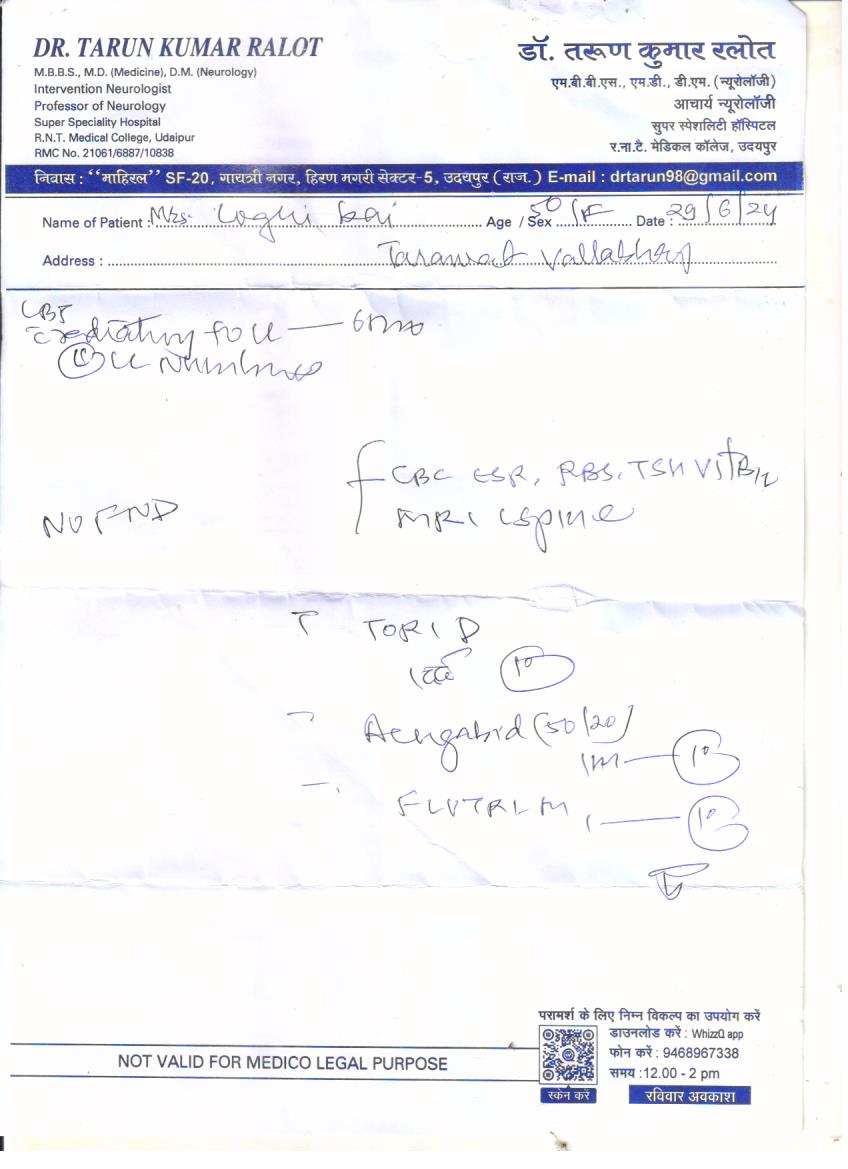 DR. TARUN KUMAR RALOT
M.B.B.S., M.D. (Medicine), D.M. (Neurology)
Intervention Neurologist
Professor of Neurology
Super Speciality Hospital
R.N.T. Medical College, Udaipur
RMC No. 21061/6887/10838
डॉ. तरूण कुमार रलोत
एम.बी.बी.एस., एम.डी., डी.एम. (न्यूरोलॉजी)
आचार्य न्यूरोलॉजी
सुपर स्पेशलिटी हॉस्पिटल
र.ना.टै. मेडिकल कॉलेज, उदयपुर
निवास : ‘‘माहिरल’’ SF-20, गायत्री नगर, हिरण मगरी सेक्टर-5, उदयपुर (राज.) E-mail : drtarun98@gmail.com
Name of Patient : Mrs. Age / Sex 50/F Date : 29/6/24
Address :
CBC ESR, RBS, TSH Vit B12
NO FND
MRI C spine
T TORI D
10
(50/20)
1M 10
10
परामर्श के लिए निम्न विकल्प का उपयोग करें
डाउनलोड करें : WhizzQ app
फोन करें : 9468967338
समय :12.00 - 2 pm
स्केन करें रविवार अवकाश
NOT VALID FOR MEDICO LEGAL PURPOSE